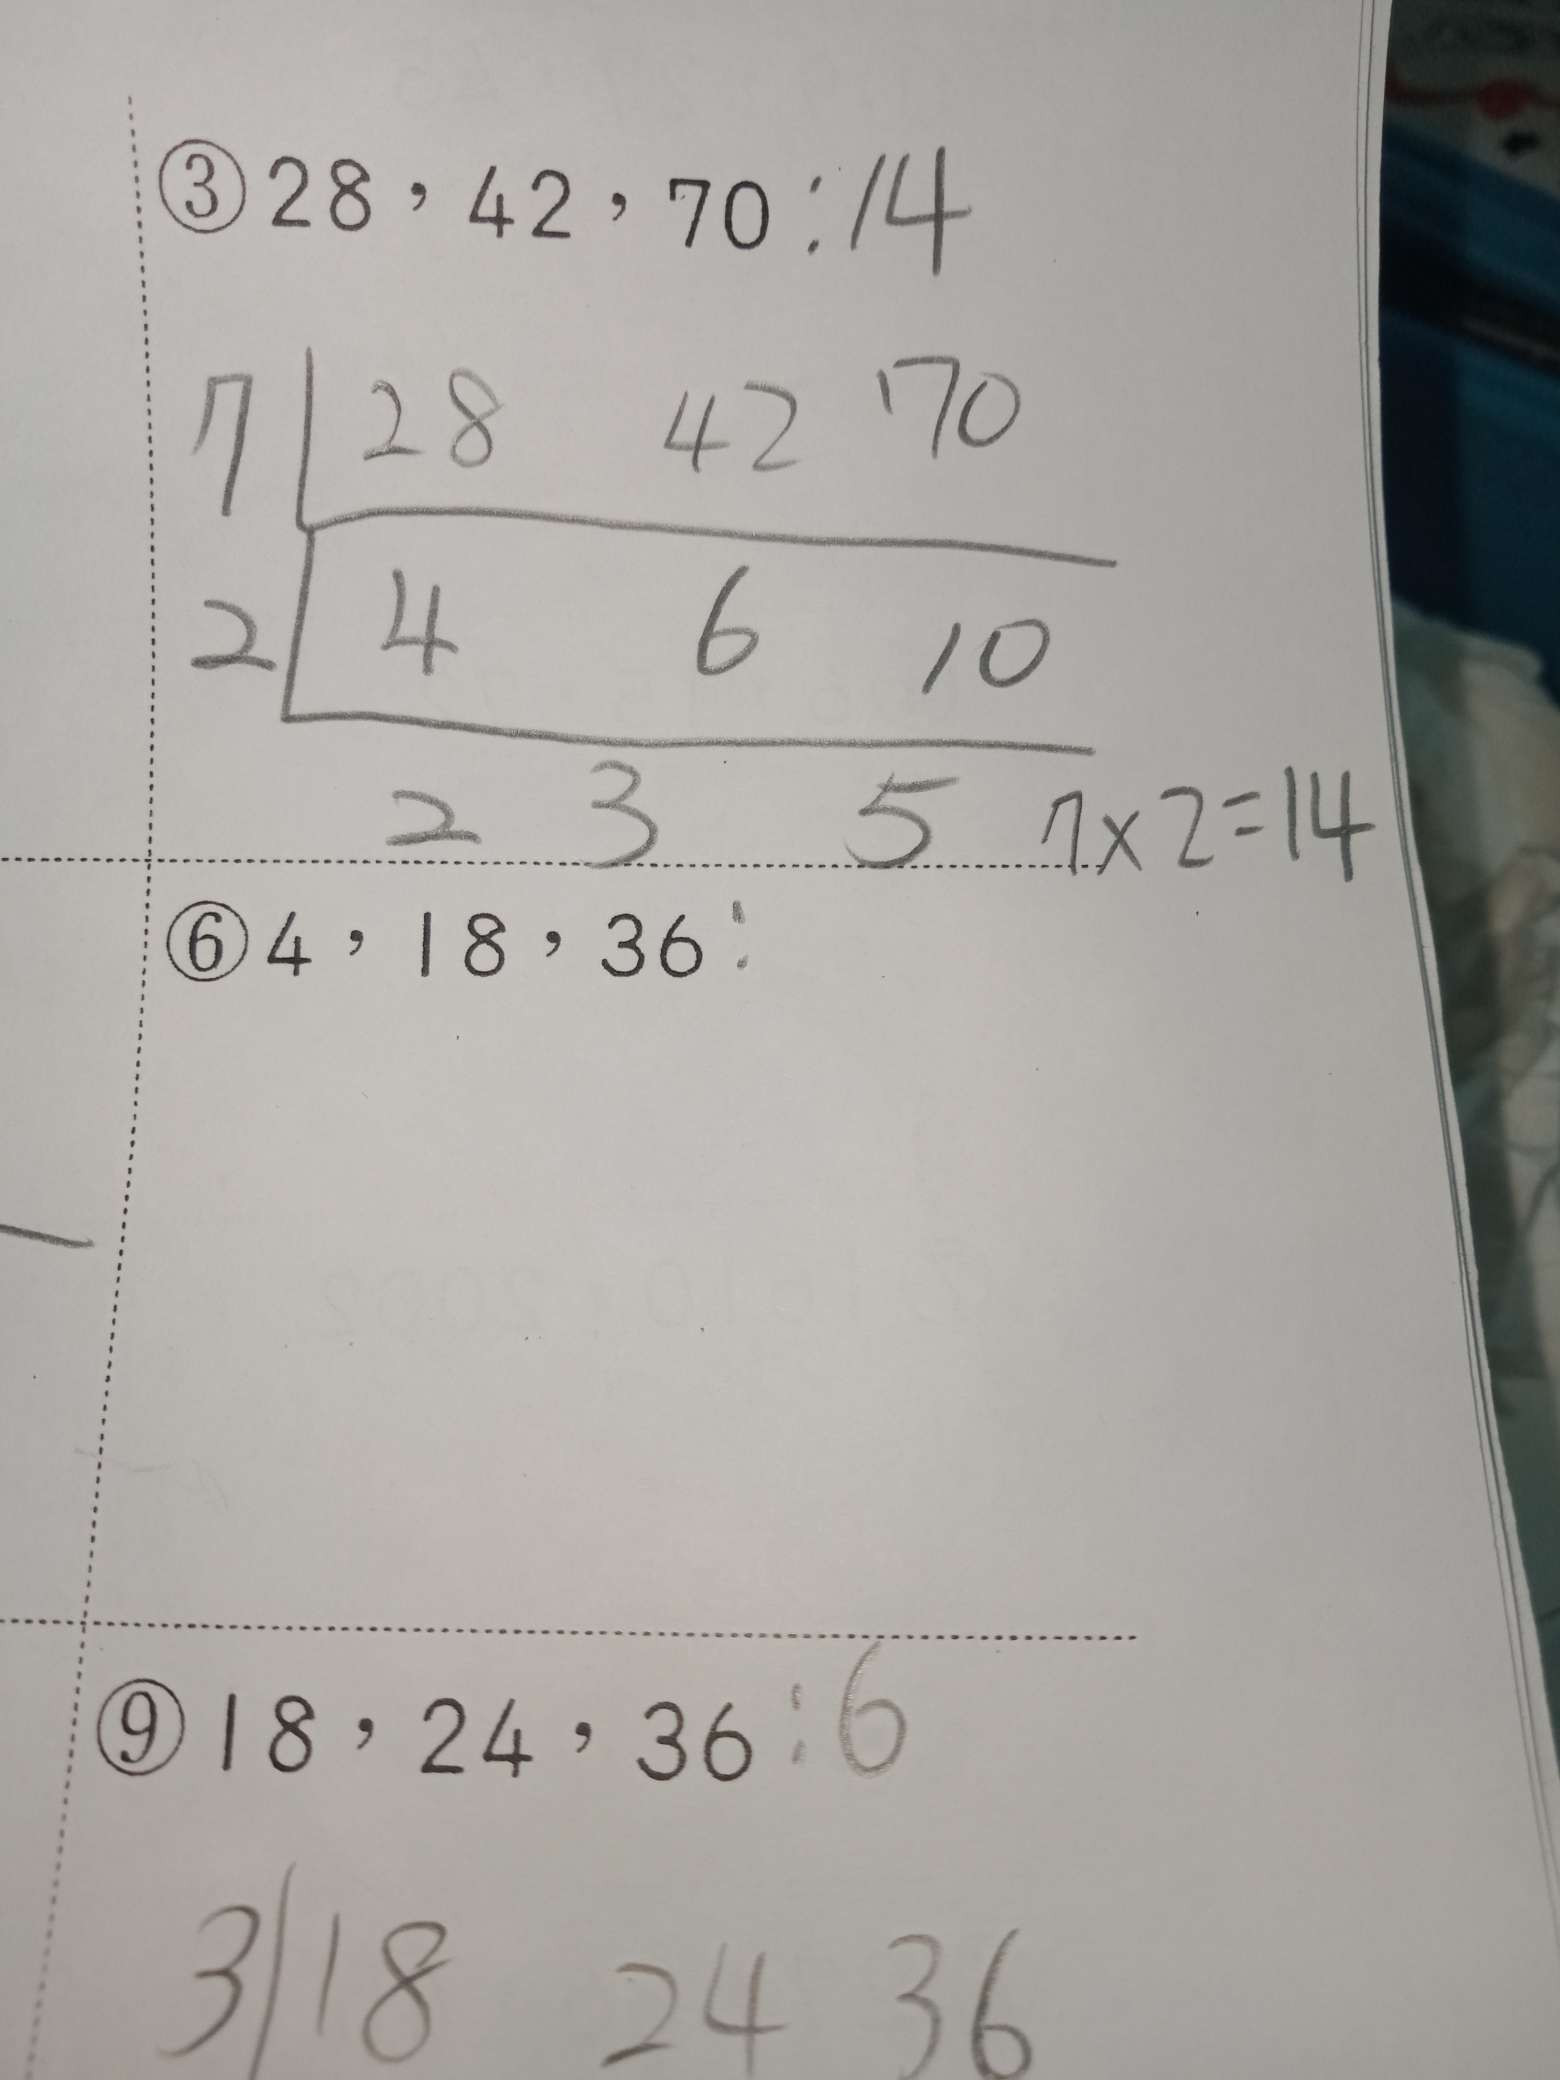 ③28，42，70：14
7 28 42 70
2 4 6 10
2 3 5 7×2=14
⑥4，18，36：
⑨18，24，36：6
3 18 24 36